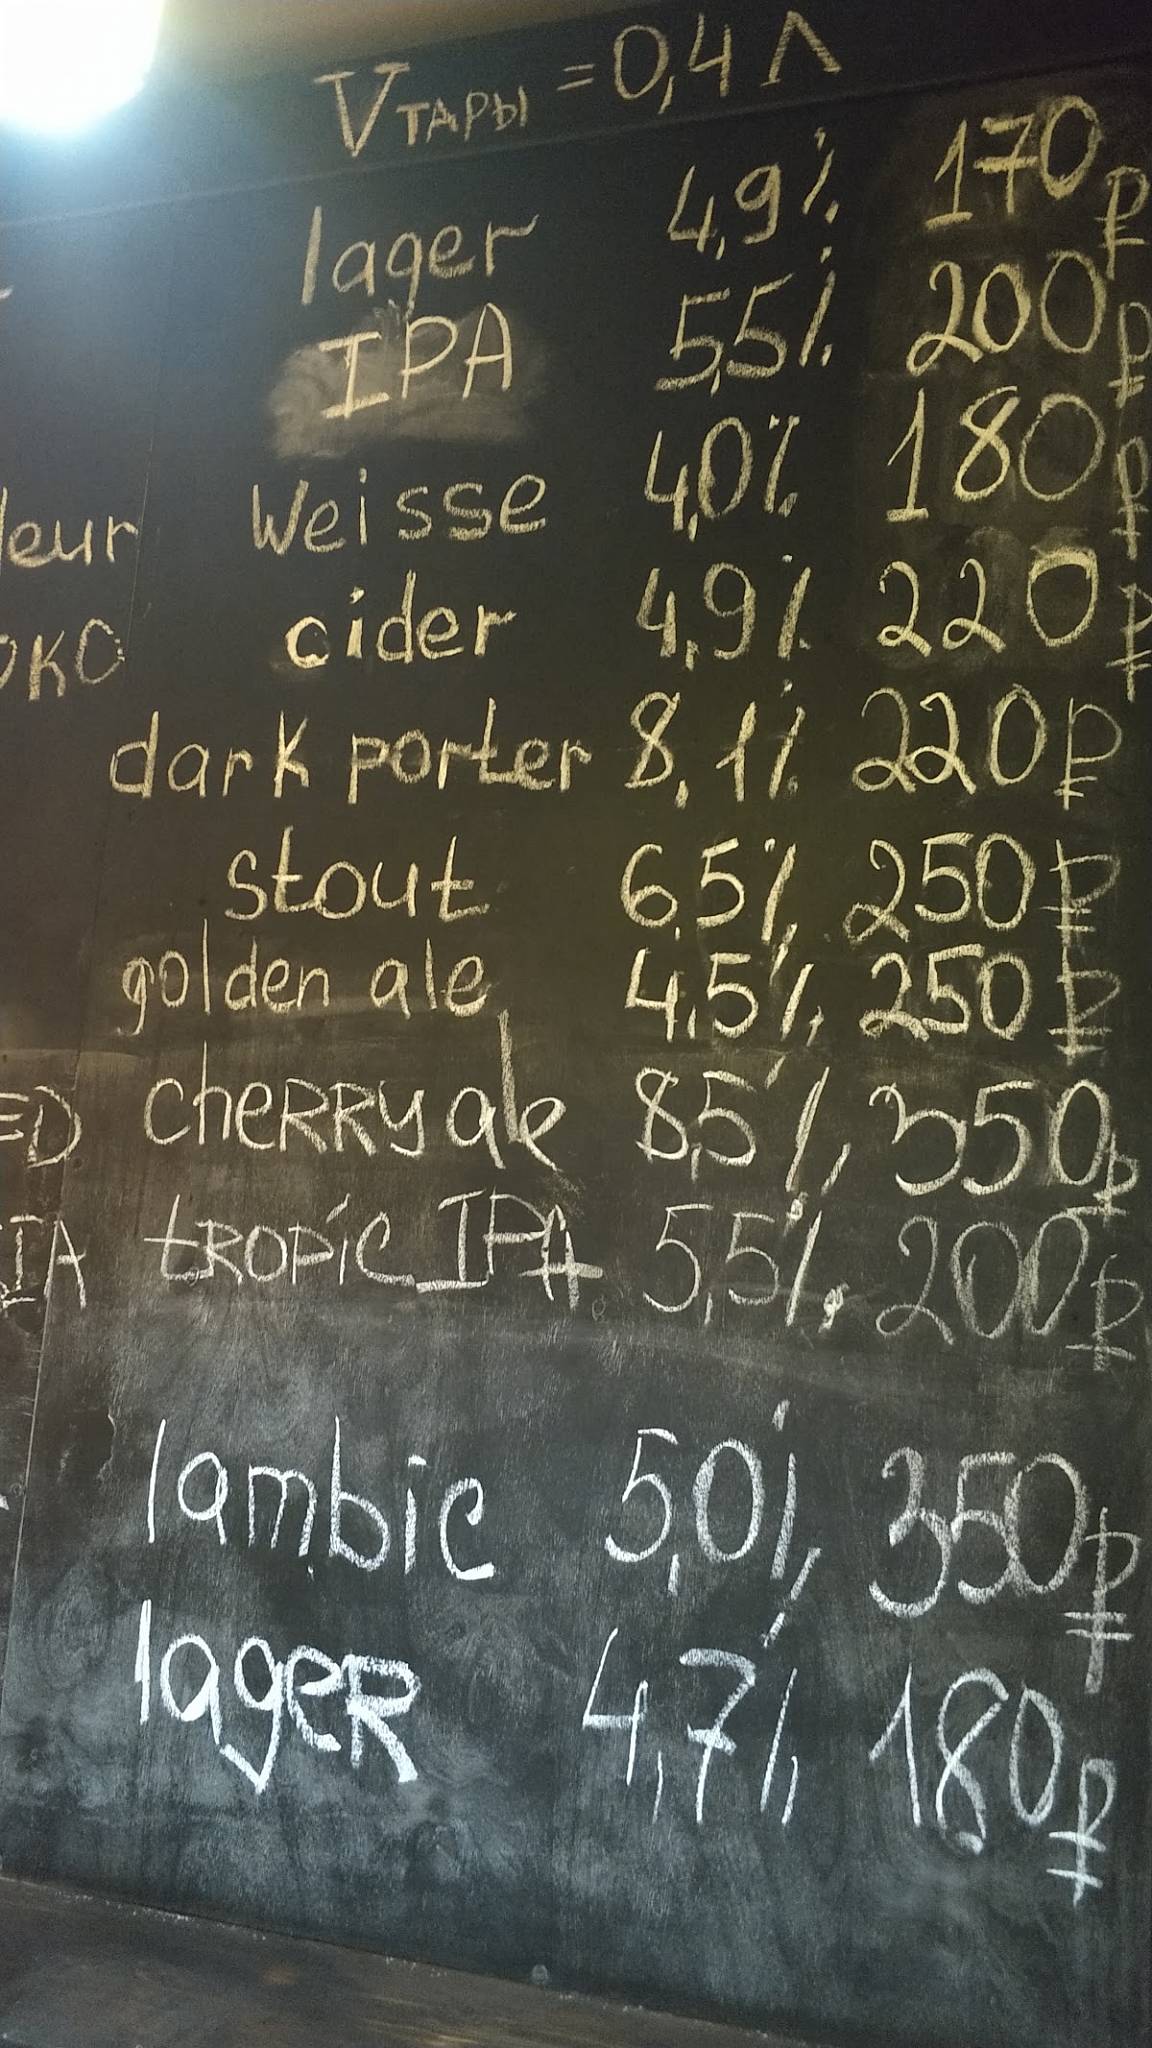 Vтары = 0,4 л
lager 4,9% 170₽
IPA 5,5% 200₽
leur Weisse 4,0% 180₽
око cider 4,9% 220₽
dark porter 8,1% 220₽
stout 6,5% 250₽
golden ale 4,5% 250₽
ED cheRRy ale 8,5% 350₽
IA tRopic IPA 5,5% 200₽
lambic 5,0% 350₽
lageR 4,7% 180₽